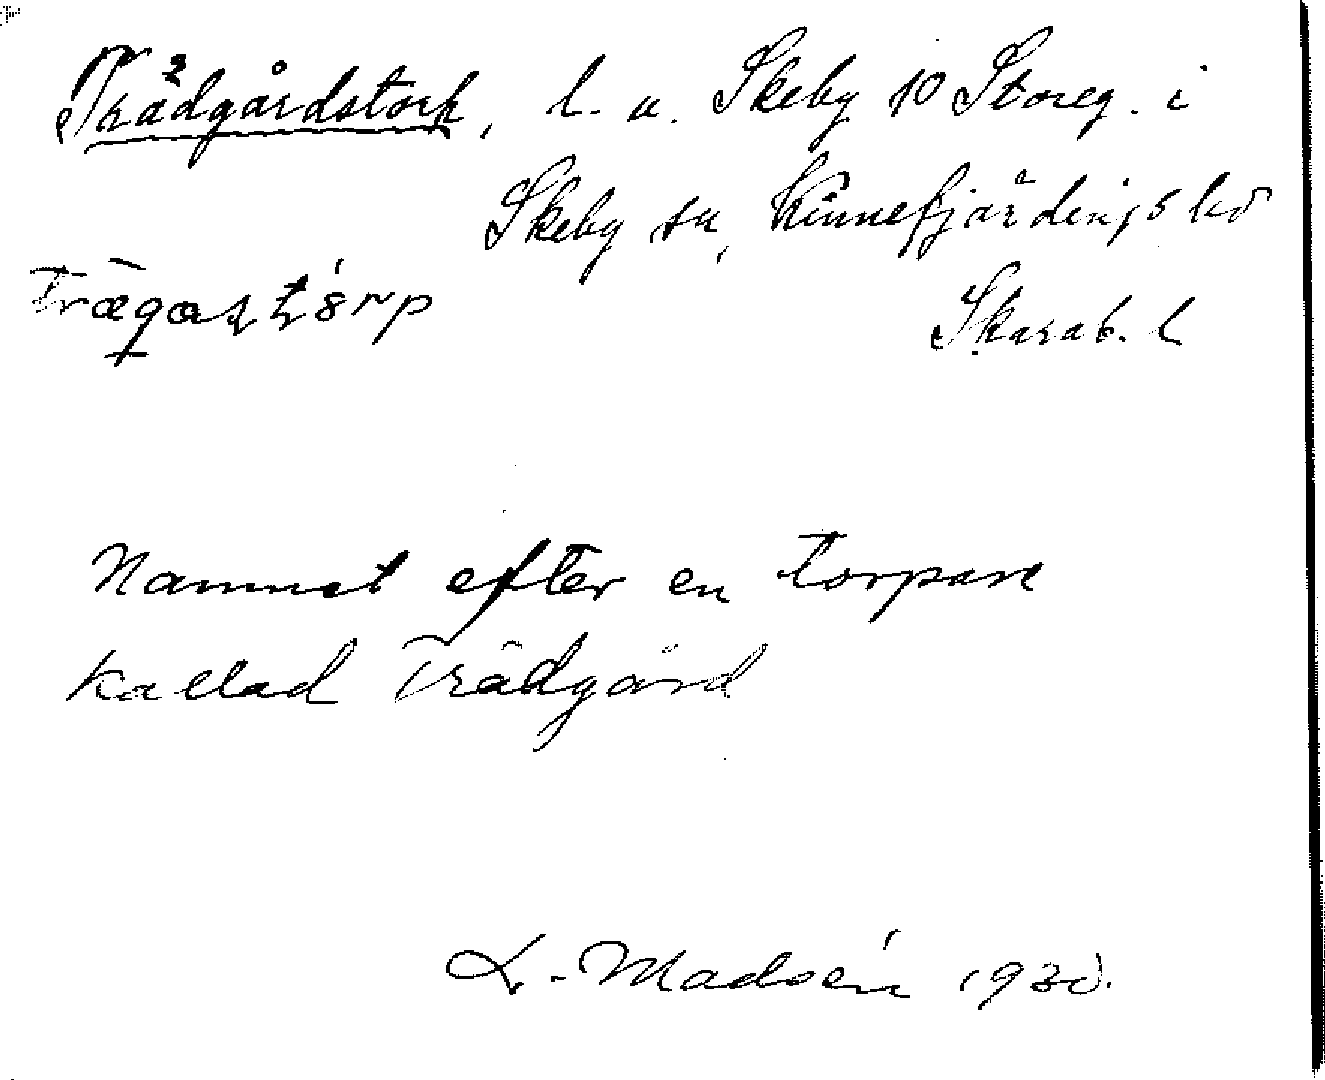 Trädgårdstorp, l. u. Skeby 10 Storeg. i
Skeby sn, Kinnefjärdings hd
Skarab. l
Namnet efter en torpare
kallad Trädgård
L. Madsén 1930.